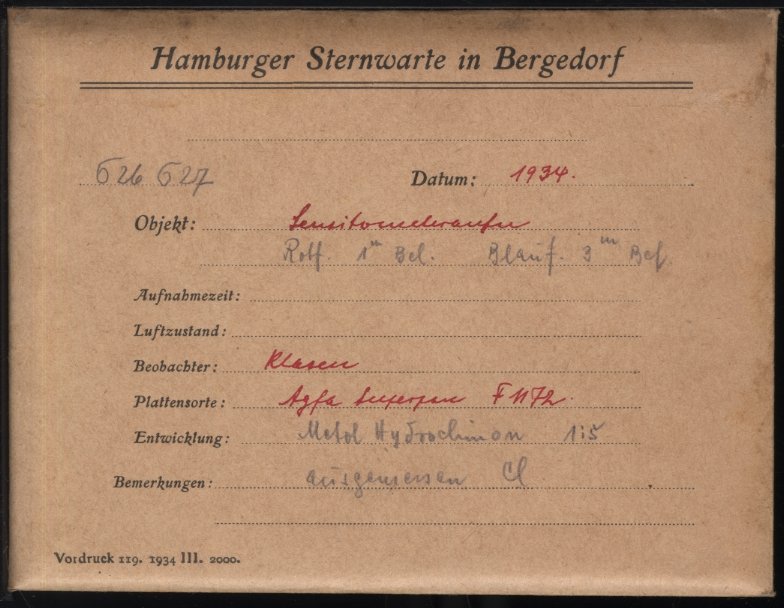 Hamburger Sternwarte in Bergedorf
626 627 Datum: 1934.
Objekt: Sensitometeraufn
Rotf. 1m Bel. Blauf. 3m Bel
Aufnahmezeit:
Luftzustand:
Beobachter: Klasen
Plattensorte: Agfa Superpan F 1172
Entwicklung: Metol Hydrochinon 1:5
Bemerkungen: ausgemessen Cl
Vordruck 119. 1934 III. 2000.